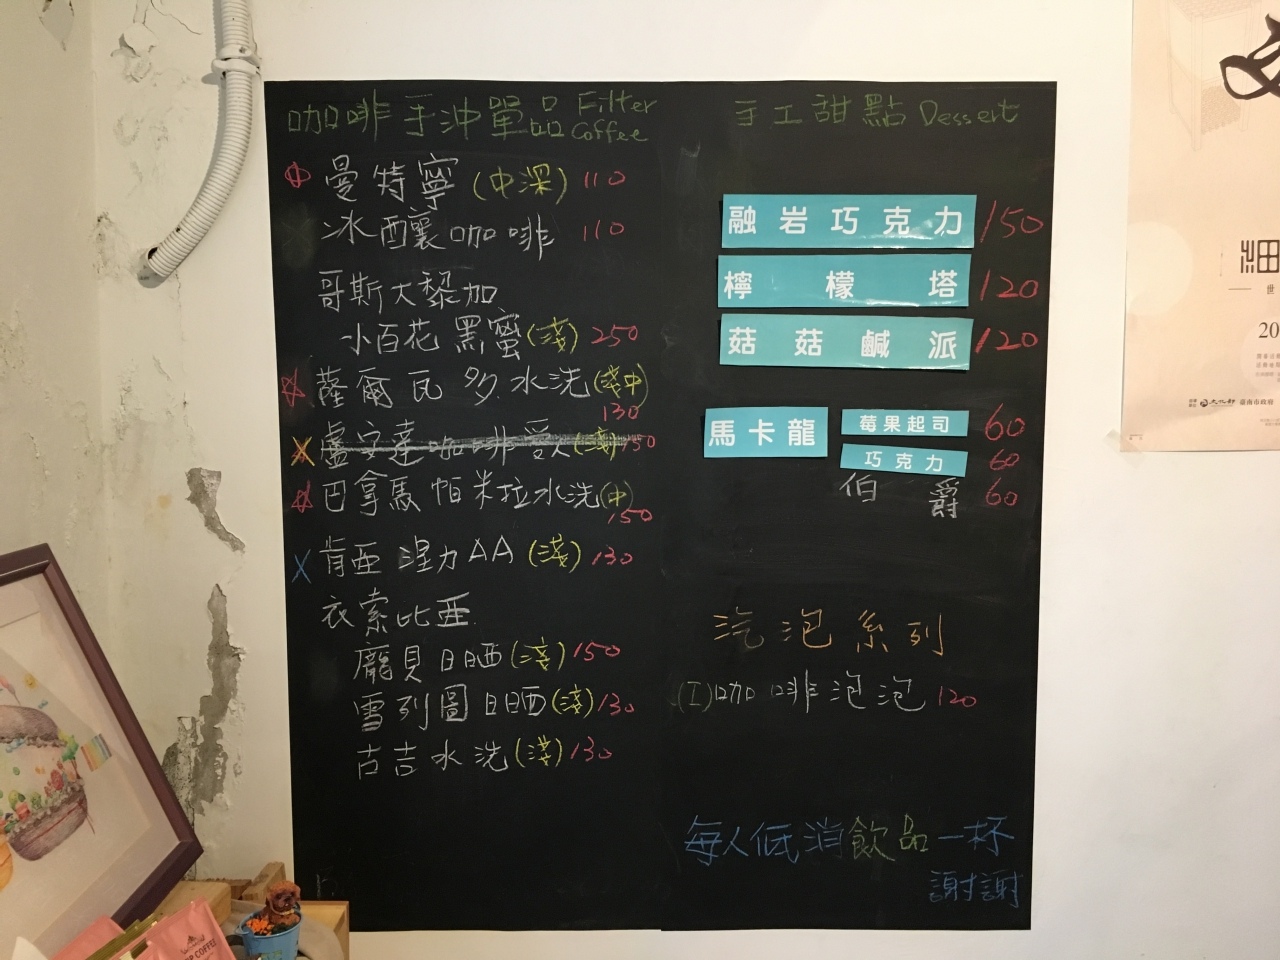 咖啡手沖單品 Filter Coffee
曼特寧 (中深) 110
冰釀咖啡 110
哥斯大黎加
小百花 黑蜜 (淺) 250
薩爾瓦多 水洗 (淺中) 130
盧安達咖啡愛人 (淺) 150
巴拿馬 帕米拉水洗 (中) 150
肯亞 涅力AA (淺) 130
衣索比亞
龐貝 日晒 (淺) 150
雪列圖 日晒 (淺) 130
古吉 水洗 (淺) 130
手工甜點 Dessert
融岩巧克力 150
檸檬塔 120
菇菇鹹派 120
馬卡龍 莓果起司 60
巧克力 60
伯爵 60
汽泡系列
(I)咖啡泡泡 120
每人低消飲品一杯
謝謝
20
臺南市政府